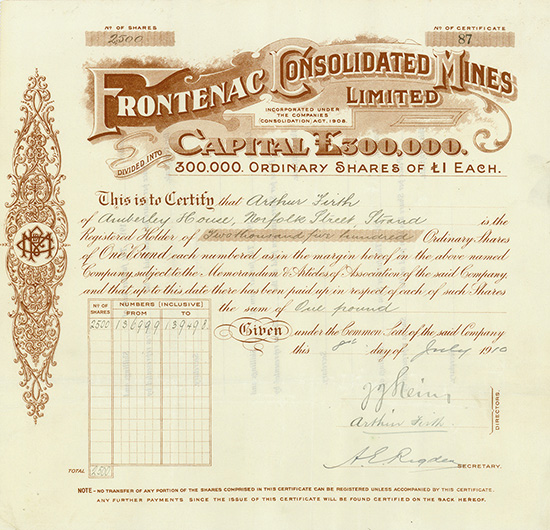 No OF SHARES
2500
No OF CERTIFICATE
87
FRONTENAC CONSOLIDATED MINES
LIMITED
INCORPORATED UNDER
THE COMPANIES
(CONSOLIDATION) ACT, 1908.
DIVIDED INTO
CAPITAL £300,000.
300,000 ORDINARY SHARES OF £1 EACH.
This is to Certify that Arthur Firth
of Amberley House, Norfolk Street, Strand is the
Registered Holder of Two thousand five hundred Ordinary Shares
of One Pound each numbered as in the margin hereof in the above named
Company, subject to the Memorandum & Articles of Association of the said Company,
and that up to this date there has been paid up in respect of each of such Shares
the sum of One pound
Given under the Common Seal of the said Company
this 8th day of July 1910
No OF SHARES
NUMBERS (INCLUSIVE)
FROM TO
2500 136999 139498
Arthur Firth
DIRECTORS.
A.E. Rigden
SECRETARY.
TOTAL 2500
NOTE - NO TRANSFER OF ANY PORTION OF THE SHARES COMPRISED IN THIS CERTIFICATE CAN BE REGISTERED UNLESS ACCOMPANIED BY THIS CERTIFICATE.
ANY FURTHER PAYMENTS SINCE THE ISSUE OF THIS CERTIFICATE WILL BE FOUND CERTIFIED ON THE BACK HEREOF.